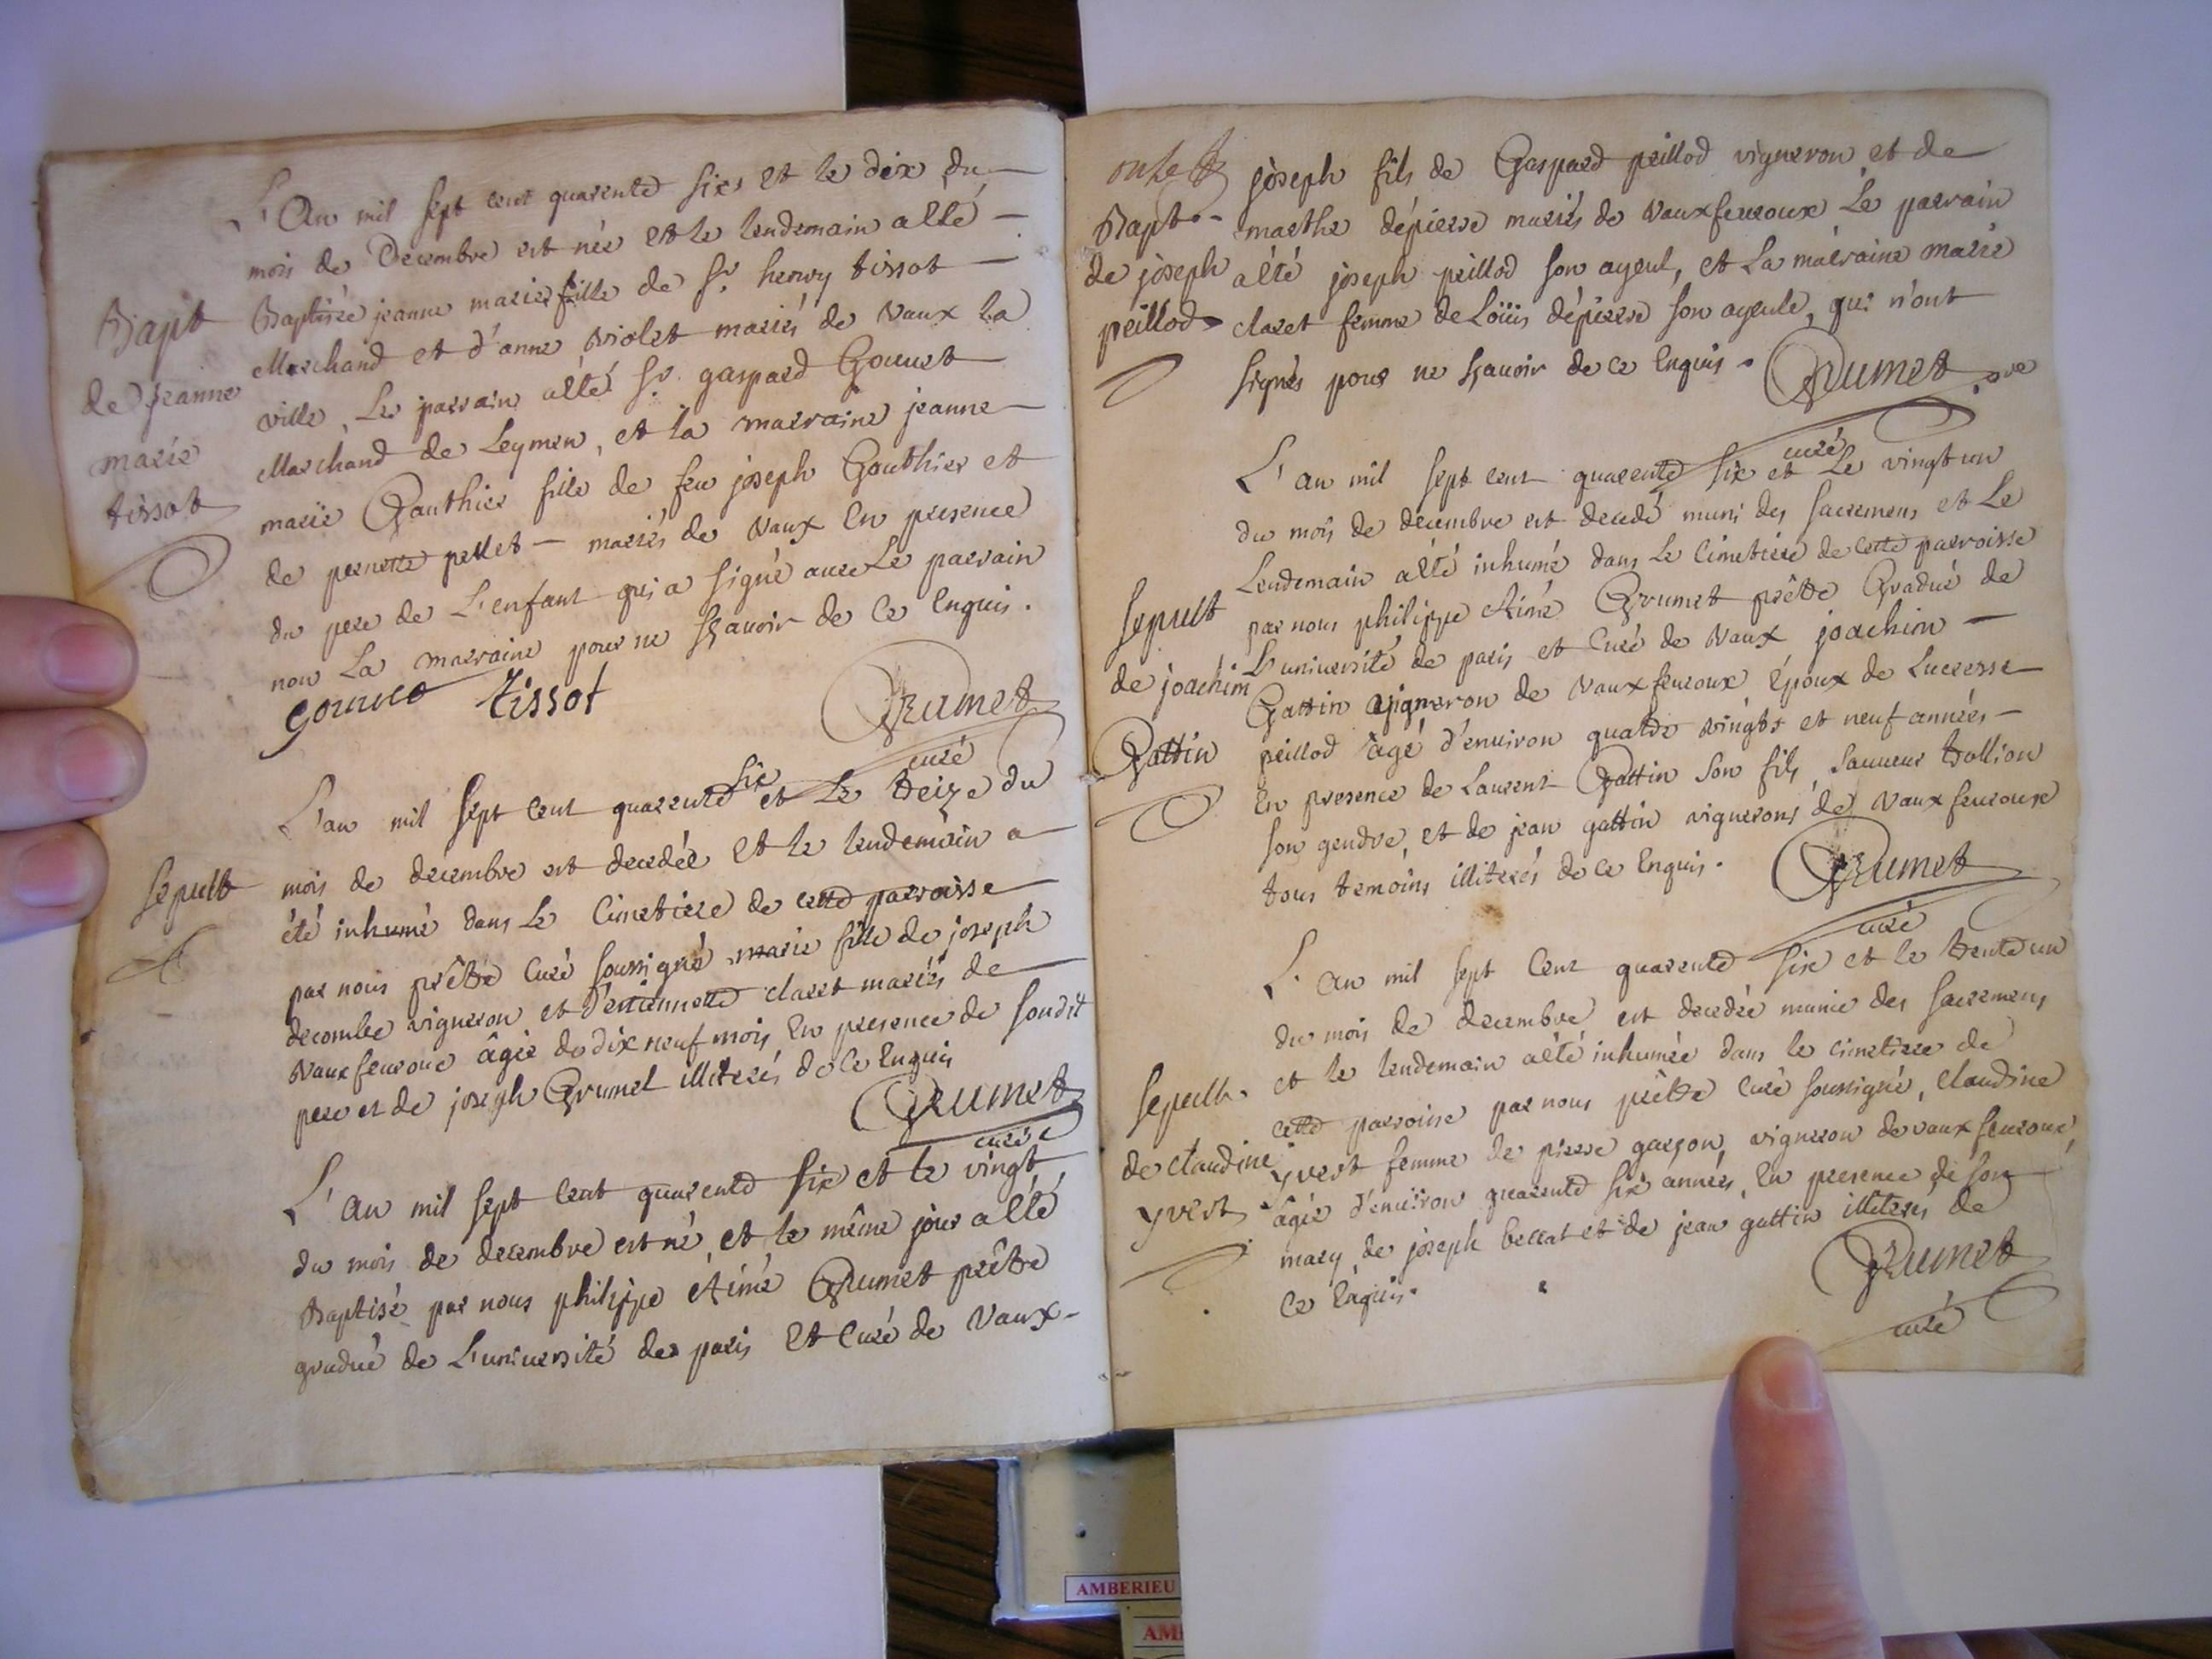 L'An mil sept cent quarente six et le dix du
mois de Decembre est née et le lendemain a été
Baptisée jeanne marie fille de Sr. henry tissot
Marchand et d'anne violet mariés de Vaux la
ville, Le parrain a été Sr. gaspard Gounet
Marchand de Leymen, et la marraine jeanne
marie Gauthier fille de feu joseph Gauthier et
de pernette pellet mariés de Vaux En presence
du pere de L'enfant qui a signé avec Le parrain
non La marraine pour ne sçavoir de ce Enquis.
Bapt
de jeanne
marie
tissot
tissot
Grumet
curé
L'an mil sept cent quarente six et Le treize du
mois de decembre est decedée et le lendemain a
été inhumé dans Le Cimetiere de cette parroisse
par nous prêtre Curé soussigné marie fille de joseph
decombe vigneron et d'estiennette claret mariés de
Vaux fevroux âgée de dix neuf mois En presence de sondit
pere et de joseph Grumel illiterés de ce Enquis
Sepult
Grumet
curé
L'an mil sept cent quarente six et le vingt
du mois de decembre est né, et le même jour a été
Baptisé par nous philippe Aimé Grumet prêtre
gradué de L'université de paris Et Curé de Vaux-
joseph fils de Gaspard peillod vigneron et de
marthe dépierre mariés de Vaux fevroux Le parrain
a été joseph peillod son ayeul, et La marraine marie
claret femme de Loüis dépierre son ayeule, qui n'ont
signés pour ne sçavoir de ce Enquis.
Bapt.
de joseph
peillod
Grumet
curé
L'an mil sept cent quarente six et Le vingt un
du mois de decembre est decedé muni des sacremens et Le
Lendemain a été inhumé dans Le Cimetiere de cette parroisse
par nous philippe Aimé Grumet prêtre Gradué de
L'université de paris et Curé de Vaux joachim
Gattin vigneron de Vaux fevroux Époux de Lucresse
peillod âgé d'environ quatre vingts et neuf années
En presence de Laurent Gattin son fils, sauveur trollion
son gendre, et de jean gattin vignerons de Vaux fevroux
tous temoins illiterés de ce Enquis.
Sepult
de joachim
Gattin
Grumet
curé
L'an mil sept cent quarente six et le trente un
du mois de decembre est decedée munie des sacremens
et le lendemain a été inhumée dans le cimetiere de
cette parroisse par nous prêtre curé soussigné, Claudine
yvert femme de pierre garçon, vigneron de vaux fevroux,
âgée d'environ quarente six années, En presence de son
mary, de joseph bellat et de jean gattin illiterés de
ce Enquis.
Sepult.
de claudine
yvert
Grumet
curé
AMBERIEU